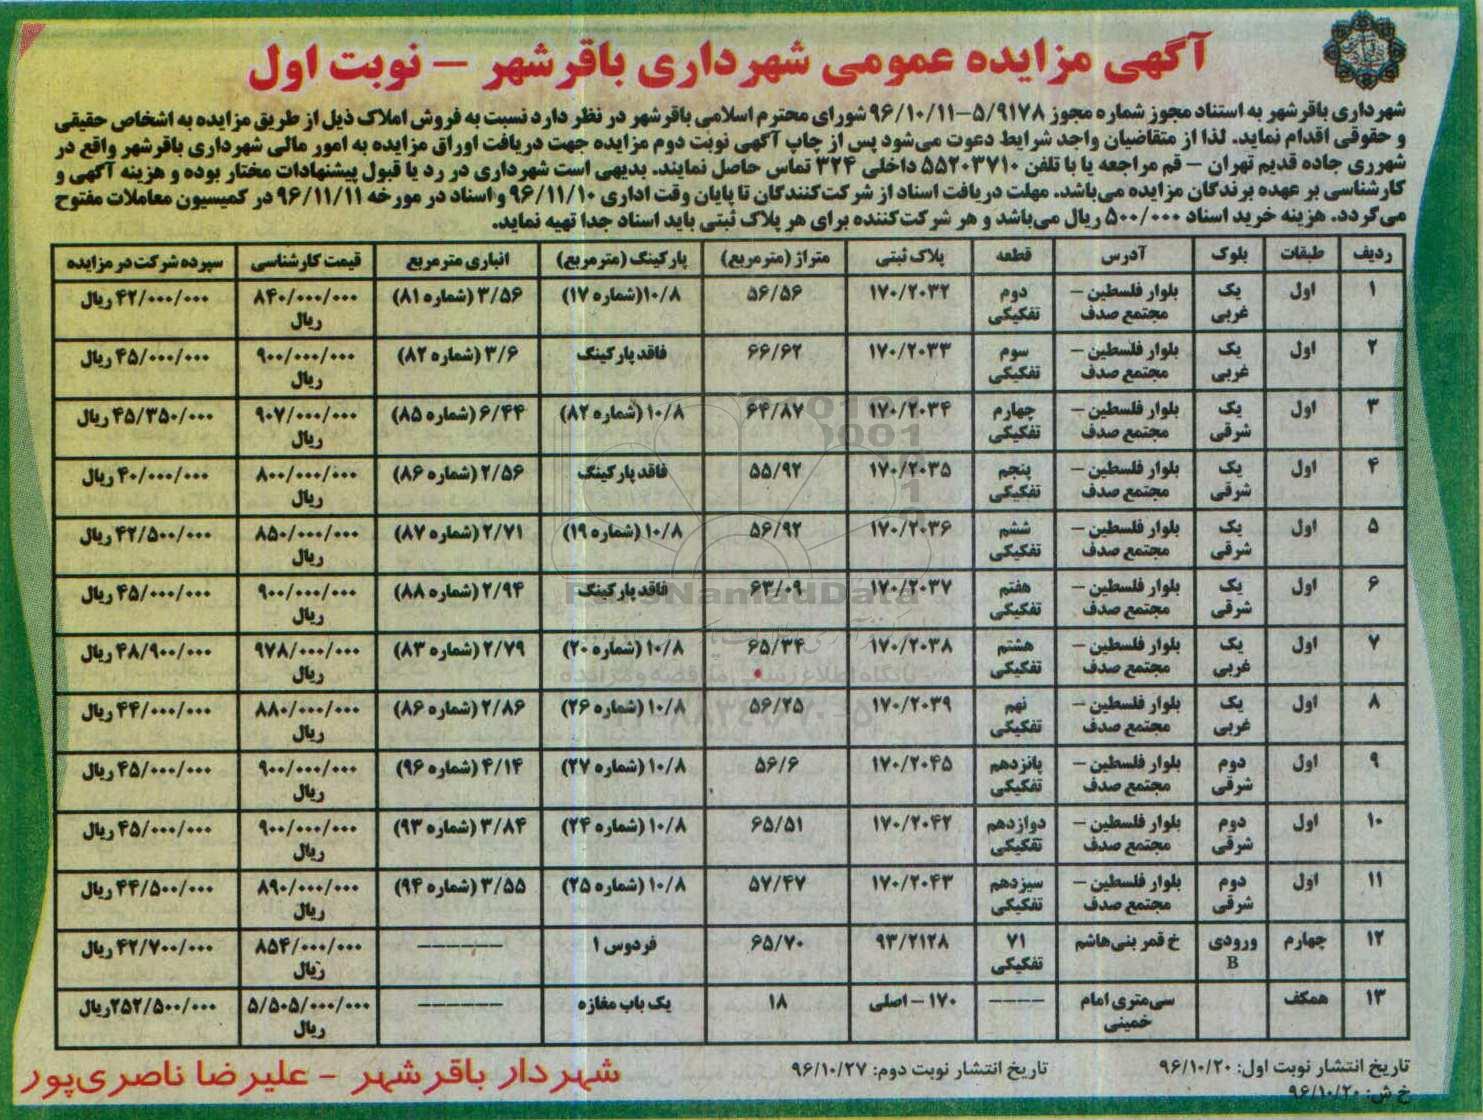 آگهی مزایده عمومی شهرداری باقرشهر – نوبت اول
شهرداری باقرشهر به استناد مجوز شماره مجوز ۵/۹۱۷۸–۹۶/۱۰/۱۱ شورای محترم اسلامی باقرشهر در نظر دارد نسبت به فروش املاک ذیل از طریق مزایده به اشخاص حقیقی
و حقوقی اقدام نماید. لذا از متقاضیان واجد شرایط دعوت می‌شود پس از چاپ آگهی نوبت دوم مزایده جهت دریافت اوراق مزایده به امور مالی شهرداری باقرشهر واقع در
شهرری جاده قدیم تهران – قم مراجعه یا با تلفن ۵۵۲۰۳۷۱۰ داخلی ۳۲۴ تماس حاصل نمایند. بدیهی است شهرداری در رد یا قبول پیشنهادات مختار بوده و هزینه آگهی و
کارشناسی بر عهده برندگان مزایده می‌باشد. مهلت دریافت اسناد از شرکت‌کنندگان تا پایان وقت اداری ۹۶/۱۱/۱۰ و اسناد در مورخه ۹۶/۱۱/۱۱ در کمیسیون معاملات مفتوح
می‌گردد. هزینه خرید اسناد ۵۰۰/۰۰۰ ریال می‌باشد و هر شرکت‌کننده برای هر پلاک ثبتی باید اسناد جدا تهیه نماید.
ردیف طبقات بلوک آدرس قطعه پلاک ثبتی متراژ (مترمربع) پارکینگ (مترمربع) انباری مترمربع قیمت کارشناسی سپرده شرکت در مزایده
۱ اول یک غربی بلوار فلسطین – مجتمع صدف دوم تفکیکی ۱۷۰/۲۰۳۲ ۵۶/۵۶ ۱۰/۸ (شماره ۱۷) ۳/۵۶ (شماره ۸۱) ۸۴۰/۰۰۰/۰۰۰ ریال ۴۲/۰۰۰/۰۰۰ ریال
۲ اول یک غربی بلوار فلسطین – مجتمع صدف سوم تفکیکی ۱۷۰/۲۰۳۳ ۶۶/۶۲ فاقد پارکینگ ۳/۶ (شماره ۸۲) ۹۰۰/۰۰۰/۰۰۰ ریال ۴۵/۰۰۰/۰۰۰ ریال
۳ اول یک شرقی بلوار فلسطین – مجتمع صدف چهارم تفکیکی ۱۷۰/۲۰۳۴ ۶۴/۸۷ ۱۰/۸ (شماره ۸۲) ۶/۴۴ (شماره ۸۵) ۹۰۷/۰۰۰/۰۰۰ ریال ۴۵/۳۵۰/۰۰۰ ریال
۴ اول یک شرقی بلوار فلسطین – مجتمع صدف پنجم تفکیکی ۱۷۰/۲۰۳۵ ۵۵/۹۲ فاقد پارکینگ ۲/۵۶ (شماره ۸۶) ۸۰۰/۰۰۰/۰۰۰ ریال ۴۰/۰۰۰/۰۰۰ ریال
۵ اول یک شرقی بلوار فلسطین – مجتمع صدف ششم تفکیکی ۱۷۰/۲۰۳۶ ۵۶/۹۲ ۱۰/۸ (شماره ۱۹) ۲/۷۱ (شماره ۸۷) ۸۵۰/۰۰۰/۰۰۰ ریال ۴۲/۵۰۰/۰۰۰ ریال
۶ اول یک شرقی بلوار فلسطین – مجتمع صدف هفتم تفکیکی ۱۷۰/۲۰۳۷ ۶۳/۰۹ فاقد پارکینگ ۲/۹۴ (شماره ۸۸) ۹۰۰/۰۰۰/۰۰۰ ریال ۴۵/۰۰۰/۰۰۰ ریال
۷ اول یک غربی بلوار فلسطین – مجتمع صدف هشتم تفکیکی ۱۷۰/۲۰۳۸ ۶۵/۳۴ ۱۰/۸ (شماره ۲۰) ۲/۷۹ (شماره ۸۳) ۹۷۸/۰۰۰/۰۰۰ ریال ۴۸/۹۰۰/۰۰۰ ریال
۸ اول یک غربی بلوار فلسطین – مجتمع صدف نهم تفکیکی ۱۷۰/۲۰۳۹ ۵۶/۲۵ ۱۰/۸ (شماره ۲۶) ۲/۸۶ (شماره ۸۶) ۸۸۰/۰۰۰/۰۰۰ ریال ۴۴/۰۰۰/۰۰۰ ریال
۹ اول دوم شرقی بلوار فلسطین – مجتمع صدف پانزدهم تفکیکی ۱۷۰/۲۰۴۵ ۵۶/۶ ۱۰/۸ (شماره ۲۷) ۴/۱۴ (شماره ۹۶) ۹۰۰/۰۰۰/۰۰۰ ریال ۴۵/۰۰۰/۰۰۰ ریال
۱۰ اول دوم شرقی بلوار فلسطین – مجتمع صدف دوازدهم تفکیکی ۱۷۰/۲۰۴۲ ۶۵/۵۱ ۱۰/۸ (شماره ۲۴) ۳/۸۴ (شماره ۹۳) ۹۰۰/۰۰۰/۰۰۰ ریال ۴۵/۰۰۰/۰۰۰ ریال
۱۱ اول دوم شرقی بلوار فلسطین – مجتمع صدف سیزدهم تفکیکی ۱۷۰/۲۰۴۳ ۵۷/۴۷ ۱۰/۸ (شماره ۲۵) ۳/۵۵ (شماره ۹۴) ۸۹۰/۰۰۰/۰۰۰ ریال ۴۴/۵۰۰/۰۰۰ ریال
۱۲ چهارم ورودی B خ قمر بنی‌هاشم ۷۱ تفکیکی ۹۳/۲۱۲۸ ۶۵/۷۰ فردوس ۱ ------- ۸۵۴/۰۰۰/۰۰۰ ریال ۴۲/۷۰۰/۰۰۰ ریال
۱۳ همکف سی‌متری امام خمینی ---- ۱۷۰ – اصلی ۱۸ یک باب مغازه ------- ۵/۵۰۵/۰۰۰/۰۰۰ ریال ۲۵۲/۵۰۰/۰۰۰ ریال
تاریخ انتشار نوبت اول: ۹۶/۱۰/۲۰ تاریخ انتشار نوبت دوم: ۹۶/۱۰/۲۷
خ ش: ۹۶/۱۰/۲۰
شهردار باقرشهر – علیرضا ناصری‌پور
ParsNamadData
پایگاه اطلاع رسانی مناقصه و مزایده